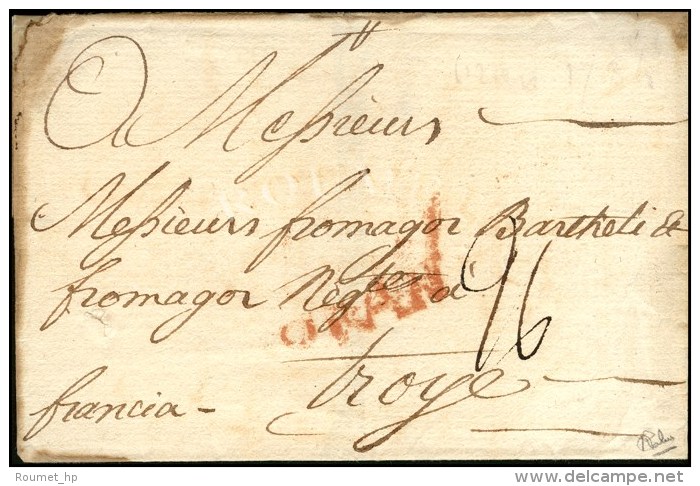 A Messieurs
Messieurs fromagor Bartheli &
fromagor Negtes a
troye
francia -
96
Roumet_hp
www.delcampe.net